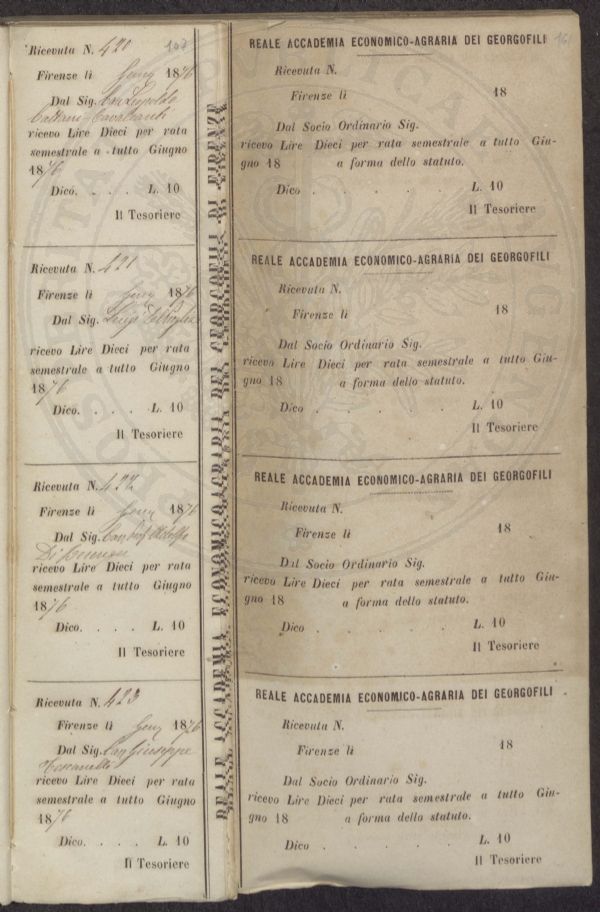 107
Ricevuta N. 420
Firenze li Genn 1876
Dal Sig. Leopoldo
Cattani-Cavalcanti
ricevo Lire Dieci per rata
semestrale a tutto Giugno
1876
Dico. . . . . L. 10
Il Tesoriere
Ricevuta N. 421
Firenze li Genn 1876
Dal Sig. Luigi
ricevo Lire Dieci per rata
semestrale a tutto Giugno
1876
Dico. . . . . L. 10
Il Tesoriere
Ricevuta N. 422
Firenze li Genn 1876
Dal Sig. Adolfo
ricevo Lire Dieci per rata
semestrale a tutto Giugno
1876
Dico. . . . . L. 10
Il Tesoriere
Ricevuta N. 423
Firenze li Genn 1876
Dal Sig. Cav Giuseppe
Toscanelli
ricevo Lire Dieci per rata
semestrale a tutto Giugno
1876
Dico. . . . . L. 10
Il Tesoriere
REALE ACCADEMIA ECONOMICO-AGRARIA DEI GEORGOFILI DI FIRENZE
REALE ACCADEMIA ECONOMICO-AGRARIA DEI GEORGOFILI
Ricevuta N.
Firenze li 18
Dal Socio Ordinario Sig.
ricevo Lire Dieci per rata semestrale a tutto Giu-
gno 18 a forma dello statuto.
Dico . . . . . L. 10
Il Tesoriere
REALE ACCADEMIA ECONOMICO-AGRARIA DEI GEORGOFILI
Ricevuta N.
Firenze li 18
Dal Socio Ordinario Sig.
ricevo Lire Dieci per rata semestrale a tutto Giu-
gno 18 a forma dello statuto.
Dico . . . . . L. 10
Il Tesoriere
REALE ACCADEMIA ECONOMICO-AGRARIA DEI GEORGOFILI
Ricevuta N.
Firenze li 18
Dal Socio Ordinario Sig.
ricevo Lire Dieci per rata semestrale a tutto Giu-
gno 18 a forma dello statuto.
Dico . . . . . L. 10
Il Tesoriere
REALE ACCADEMIA ECONOMICO-AGRARIA DEI GEORGOFILI
Ricevuta N.
Firenze li 18
Dal Socio Ordinario Sig.
ricevo Lire Dieci per rata semestrale a tutto Giu-
gno 18 a forma dello statuto.
Dico . . . . . L. 10
Il Tesoriere